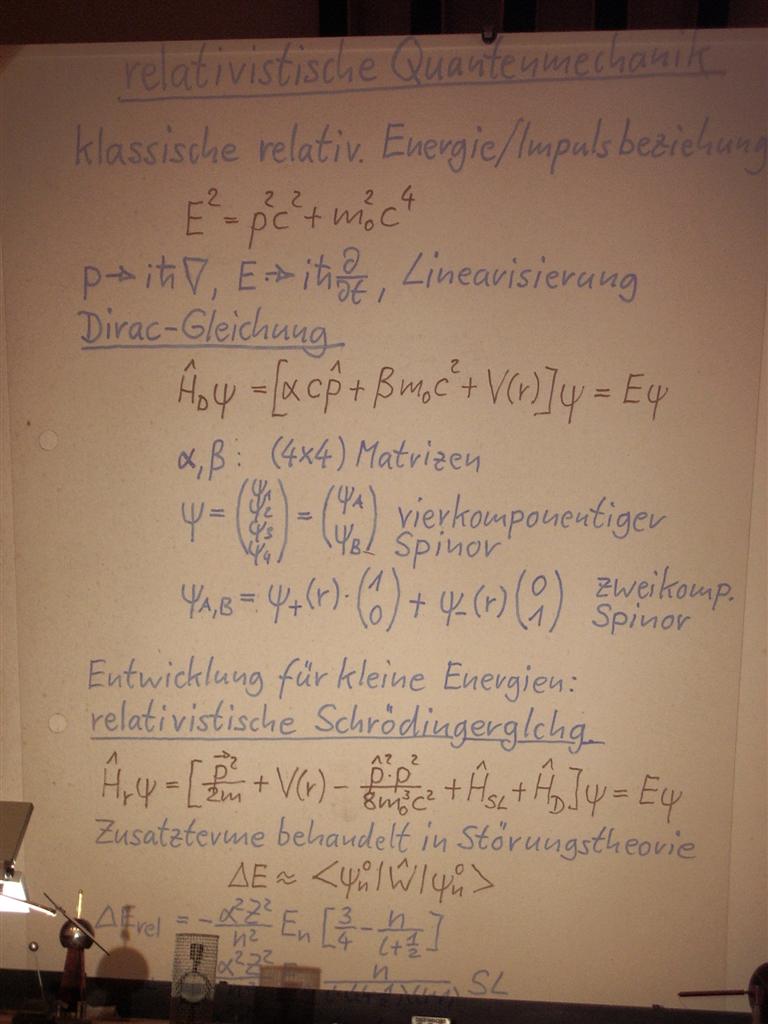 relativistische Quantenmechanik
klassische relativ. Energie/Impulsbeziehung
E² = p²c² + m₀²c⁴
p → iħ∇, E → iħ ∂/∂t, Linearisierung
Dirac-Gleichung
Ĥ_D ψ = [α c p̂ + β m₀c² + V(r)]ψ = Eψ
α, β: (4x4) Matrizen
ψ = (ψ₁ ψ₂ ψ₃ ψ₄) = (ψ_A ψ_B) vierkomponentiger Spinor
ψ_A,B = ψ₊(r)·(1 0) + ψ₋(r)(0 1) zweikomp. Spinor
Entwicklung für kleine Energien:
relativistische Schrödingerglchg.
Ĥ_r ψ = [p⃗²/2m + V(r) - p̂²·p²/8m₀³c² + Ĥ_SL + Ĥ_D]ψ = Eψ
Zusatzterme behandelt in Störungstheorie
ΔE ≈ <ψ_n⁰|Ŵ|ψ_n⁰>
ΔE_rel = -α²Z²/n² E_n [3/4 - n/(l+1/2)]
α²Z² n SL